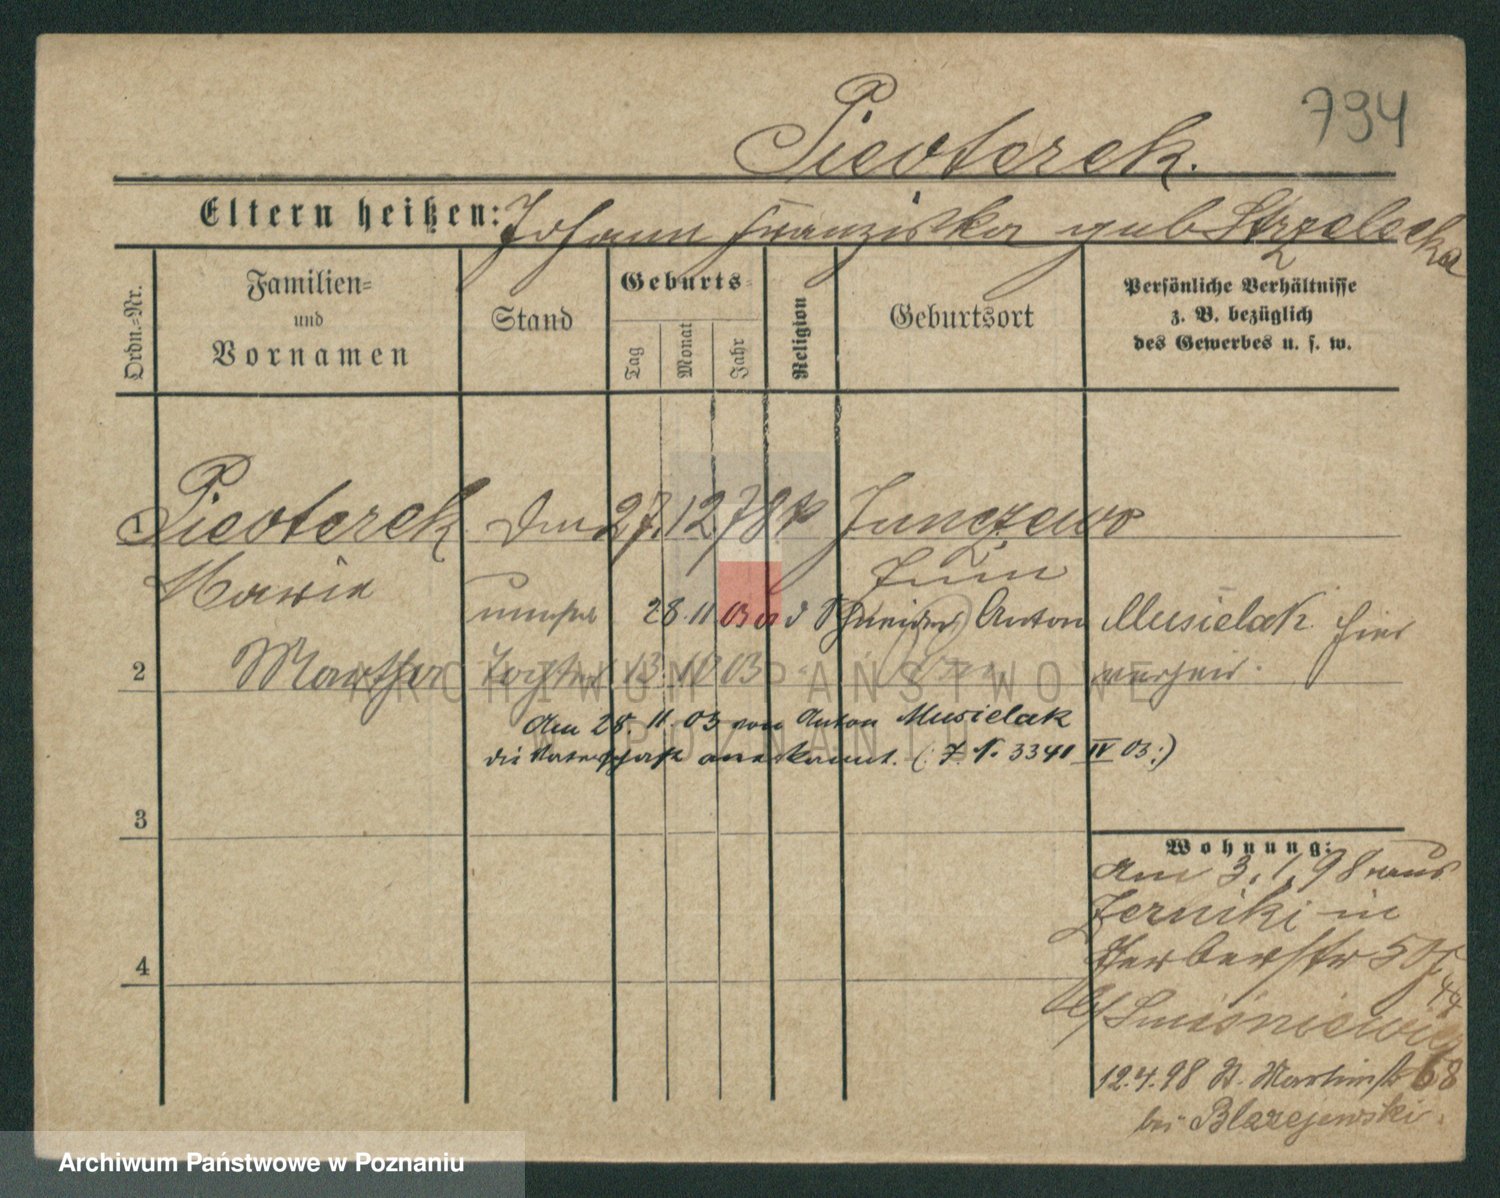 794
Pievterek.
Eltern heißen: Johann Franziska geb Strzelecka
Ordn.=Nr.
Familien=
und
Vornamen
Stand
Geburts=
Tag
Monat
Jahr
Religion
Geburtsort
Persönliche Verhältnisse
z. B. bezüglich
des Gewerbes u. s. w.
1 Pievterek 27. 12 78 k Junczewo
Maria
28. 11 03 Schneider Anton Musielak hier
2 Martha Tochter 13. 10 03
Am 28. 11. 03 von Anton Musielak
die Vaterschaft anerkannt. (: J. N. 3341 IV 03 :)
3
Wohnung:
Am 3. 1. 98 aus
Zerniki in
Gerberstr 50
4
12. 4. 98 St. Martinstr 68
bei Blazejewski.
ARCHIWUM PAŃSTWOWE
W POZNANIU
Archiwum Państwowe w Poznaniu